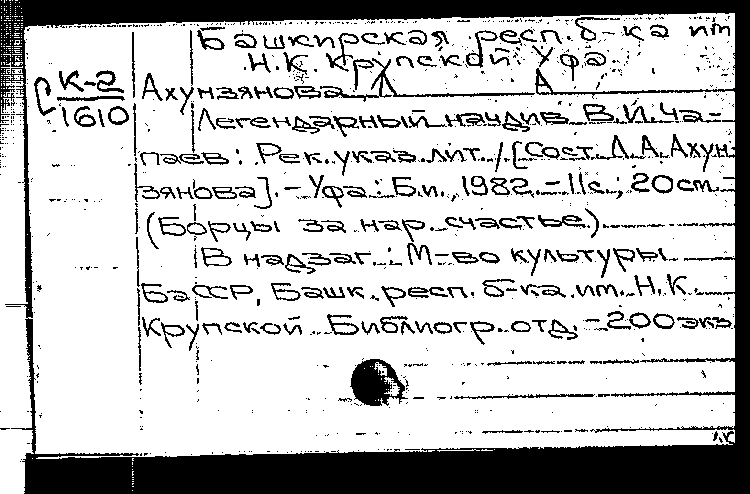 Башкирская респ. б-ка им
Н.К. Крупской. Уфа.
К-2
1610
Ахунзянова, Л А
Легендарный начдив В.И. Ча-
паев: Рек. указ. лит. / [Сост. Л.А. Ахун-
зянова]. - Уфа: Б.и., 1982. - 11с.; 20см. -
(Борцы за нар. счастье).
В надзаг.: М-во культуры
БаССР, Башк. респ. б-ка им. Н.К.
Крупской. Библиогр. отд. - 200 экз